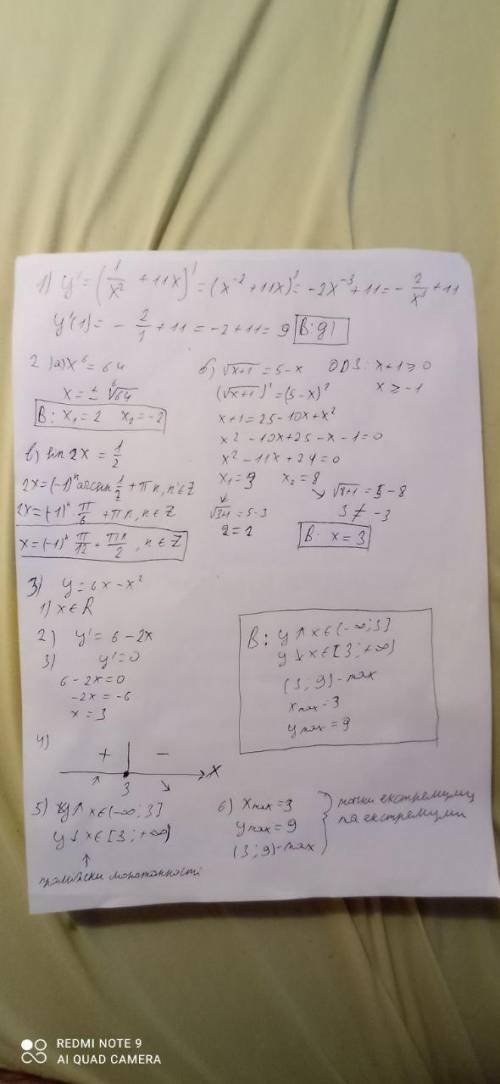 1) y' = (1/x² + 11x)' = (x⁻² + 11x)' = -2x⁻³ + 11 = - 2/x³ + 11
y'(1) = - 2/1 + 11 = -2 + 11 = 9 В: д)
2 а) x⁶ = 64
x = ± ⁶√64
В: x₁ = 2 x₂ = -2
б) √x+1 = 5 - x ОДЗ: x + 1 ≥ 0
(√x+1)² = (5 - x)² x ≥ -1
x + 1 = 25 - 10x + x²
x² - 10x + 25 - x - 1 = 0
x² - 11x + 24 = 0
x₁ = 3 x₂ = 8
√3+1 = 5 - 3 √8+1 = 5 - 8
2 = 2 3 ≠ -3
В: x = 3
в) sin 2x = 1/2
2x = (-1)ⁿ arcsin 1/2 + πn, n ∈ Z
2x = (-1)ⁿ π/6 + πn, n ∈ Z
x = (-1)ⁿ π/12 + πn/2, n ∈ Z
3) y = 6x - x²
1) x ∈ R
2) y' = 6 - 2x
3) y' = 0
6 - 2x = 0
-2x = -6
x = 3
В: y ↑ x ∈ (-∞; 3]
y ↓ x ∈ [3; +∞)
(3; 9) - max
x max = 3
y max = 9
4)
+ -
3 x
5) y ↑ x ∈ (-∞; 3]
y ↓ x ∈ [3; +∞)
проміжки монотонності
6) x max = 3
y max = 9
(3; 9) - max
точки екстремуму
та екстремуми
REDMI NOTE 9
AI QUAD CAMERA